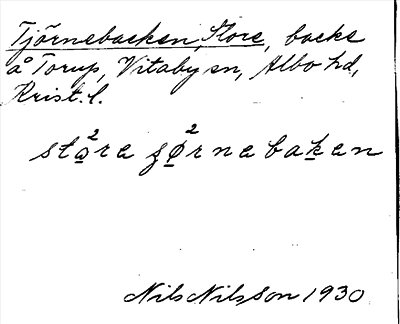 Tjörnebacken, Store, backe
å Torup, Vitaby sn, Albo hd,
Krist. l.
2 2
stọre jø̣rnebaḳen
Nils Nilsson 1930